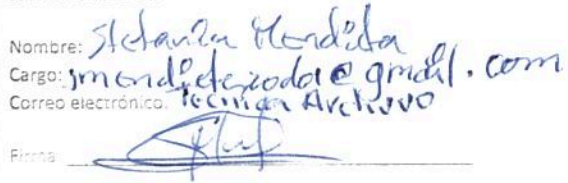 Nombre: Stefania Mendieta
Cargo: smendietazoda@gmail.com
Correo electrónico. Tecnica Archivo
Firma